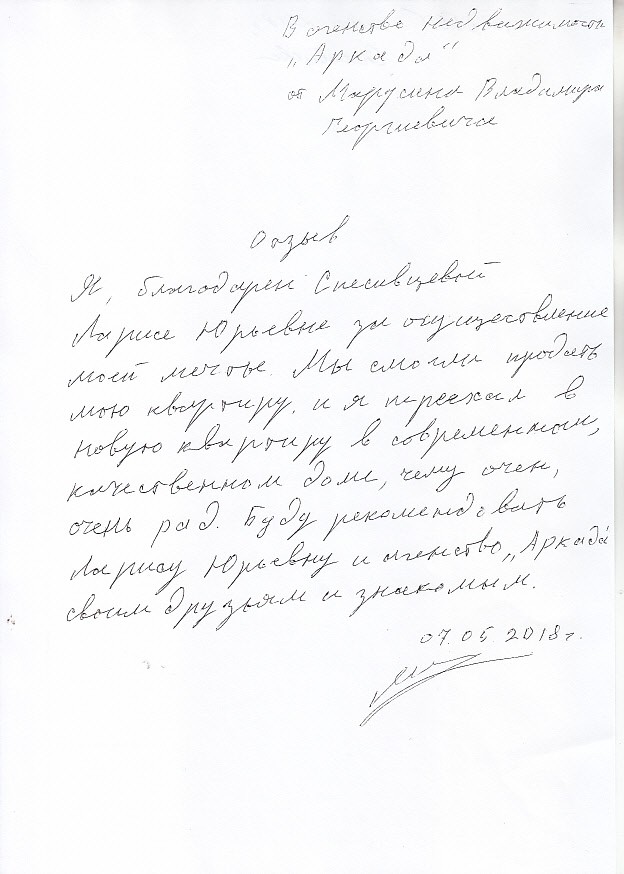 В агенстве недвижимости
„Аркада“
от Марусина Владимира
Георгиевича
Отзыв
Я, благодарен Спесивцевой
Ларисе Юрьевне за осуществление
моей мечты. Мы смогли продать
мою квартиру. и я переехал в
новую квартиру в современном,
качественном доме, чему очен,
очень рад. Буду рекомендовать
Ларису Юрьевну и агенство „Аркада“
своим друзьям и знакомым.
07.05.2018г.